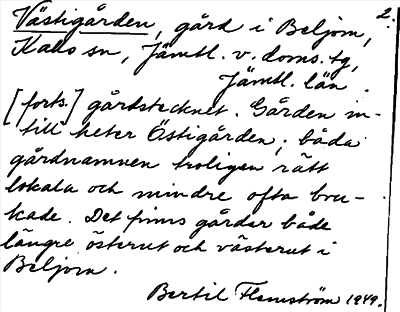 Västigården, gård i Beljom, 2.
Kalls sn, Jämtl. v. doms. tg,
Jämtl. län.
[forts.] gårdstecknet. Gården in-
till heter Östigården; båda
gårdnamnen troligen rätt
lokala och mindre ofta bru-
kade. Det finns gårdar både
längre österut och västerut i
Beljom.
Bertil Flemström 1949.